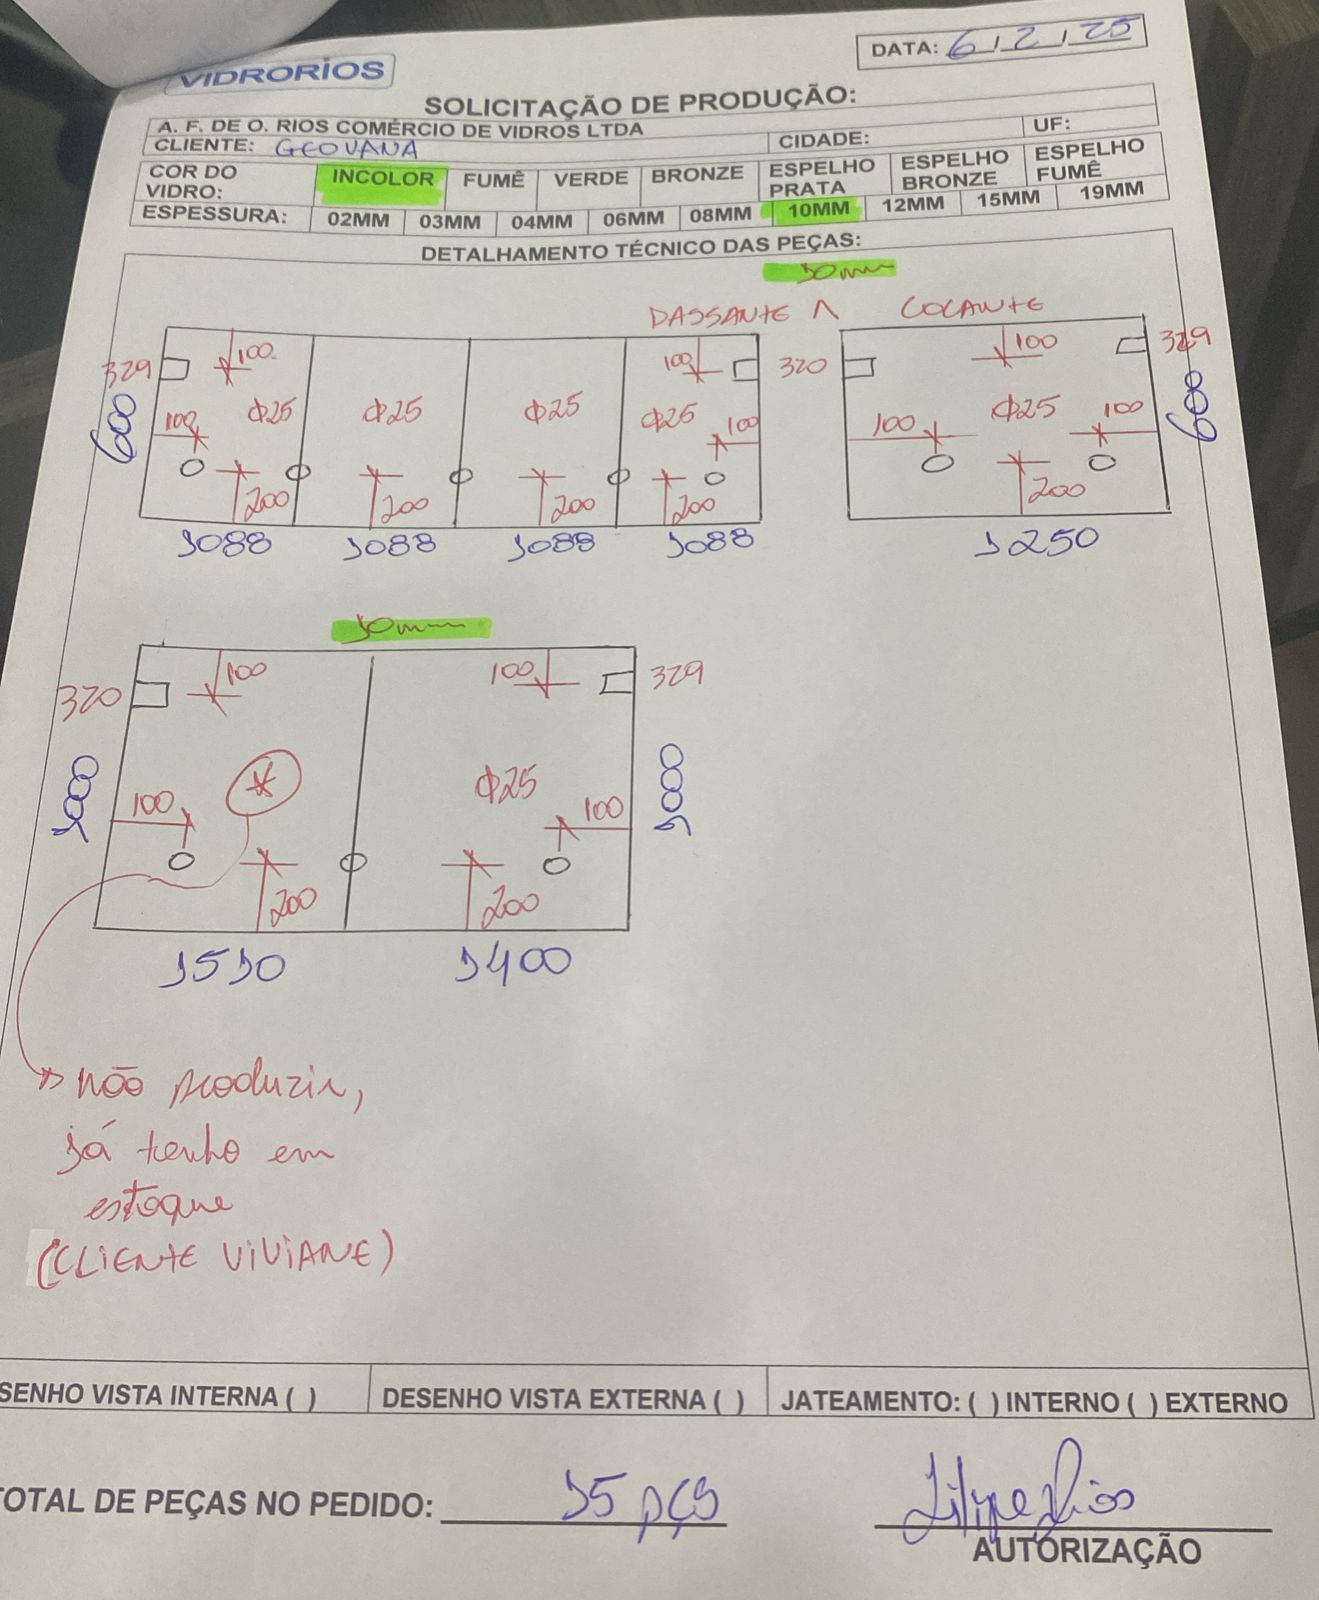 VIDRORIOS
DATA: 6 / 2 / 25
SOLICITAÇÃO DE PRODUÇÃO:
A. F. DE O. RIOS COMÉRCIO DE VIDROS LTDA
CLIENTE: GEOVANA CIDADE: UF:
COR DO VIDRO: INCOLOR FUMÊ VERDE BRONZE ESPELHO PRATA ESPELHO BRONZE ESPELHO FUMÊ
ESPESSURA: 02MM 03MM 04MM 06MM 08MM 10MM 12MM 15MM 19MM
DETALHAMENTO TÉCNICO DAS PEÇAS:
10mm
329 100 100 320 100 329
600 100 Φ25 Φ25 Φ25 Φ25 100 100 Φ25 100 600
200 200 200 200 200
1088 1088 1088 1088 1250
10mm
320 100 100 329
1000 100 * Φ25 100 1000
200 200
1510 1400
não produzir,
já tenho em
estoque
(CLIENTE VIVIANE)
SENHO VISTA INTERNA ( ) DESENHO VISTA EXTERNA ( ) JATEAMENTO: ( ) INTERNO ( ) EXTERNO
TOTAL DE PEÇAS NO PEDIDO: 15 pçs
AUTORIZAÇÃO